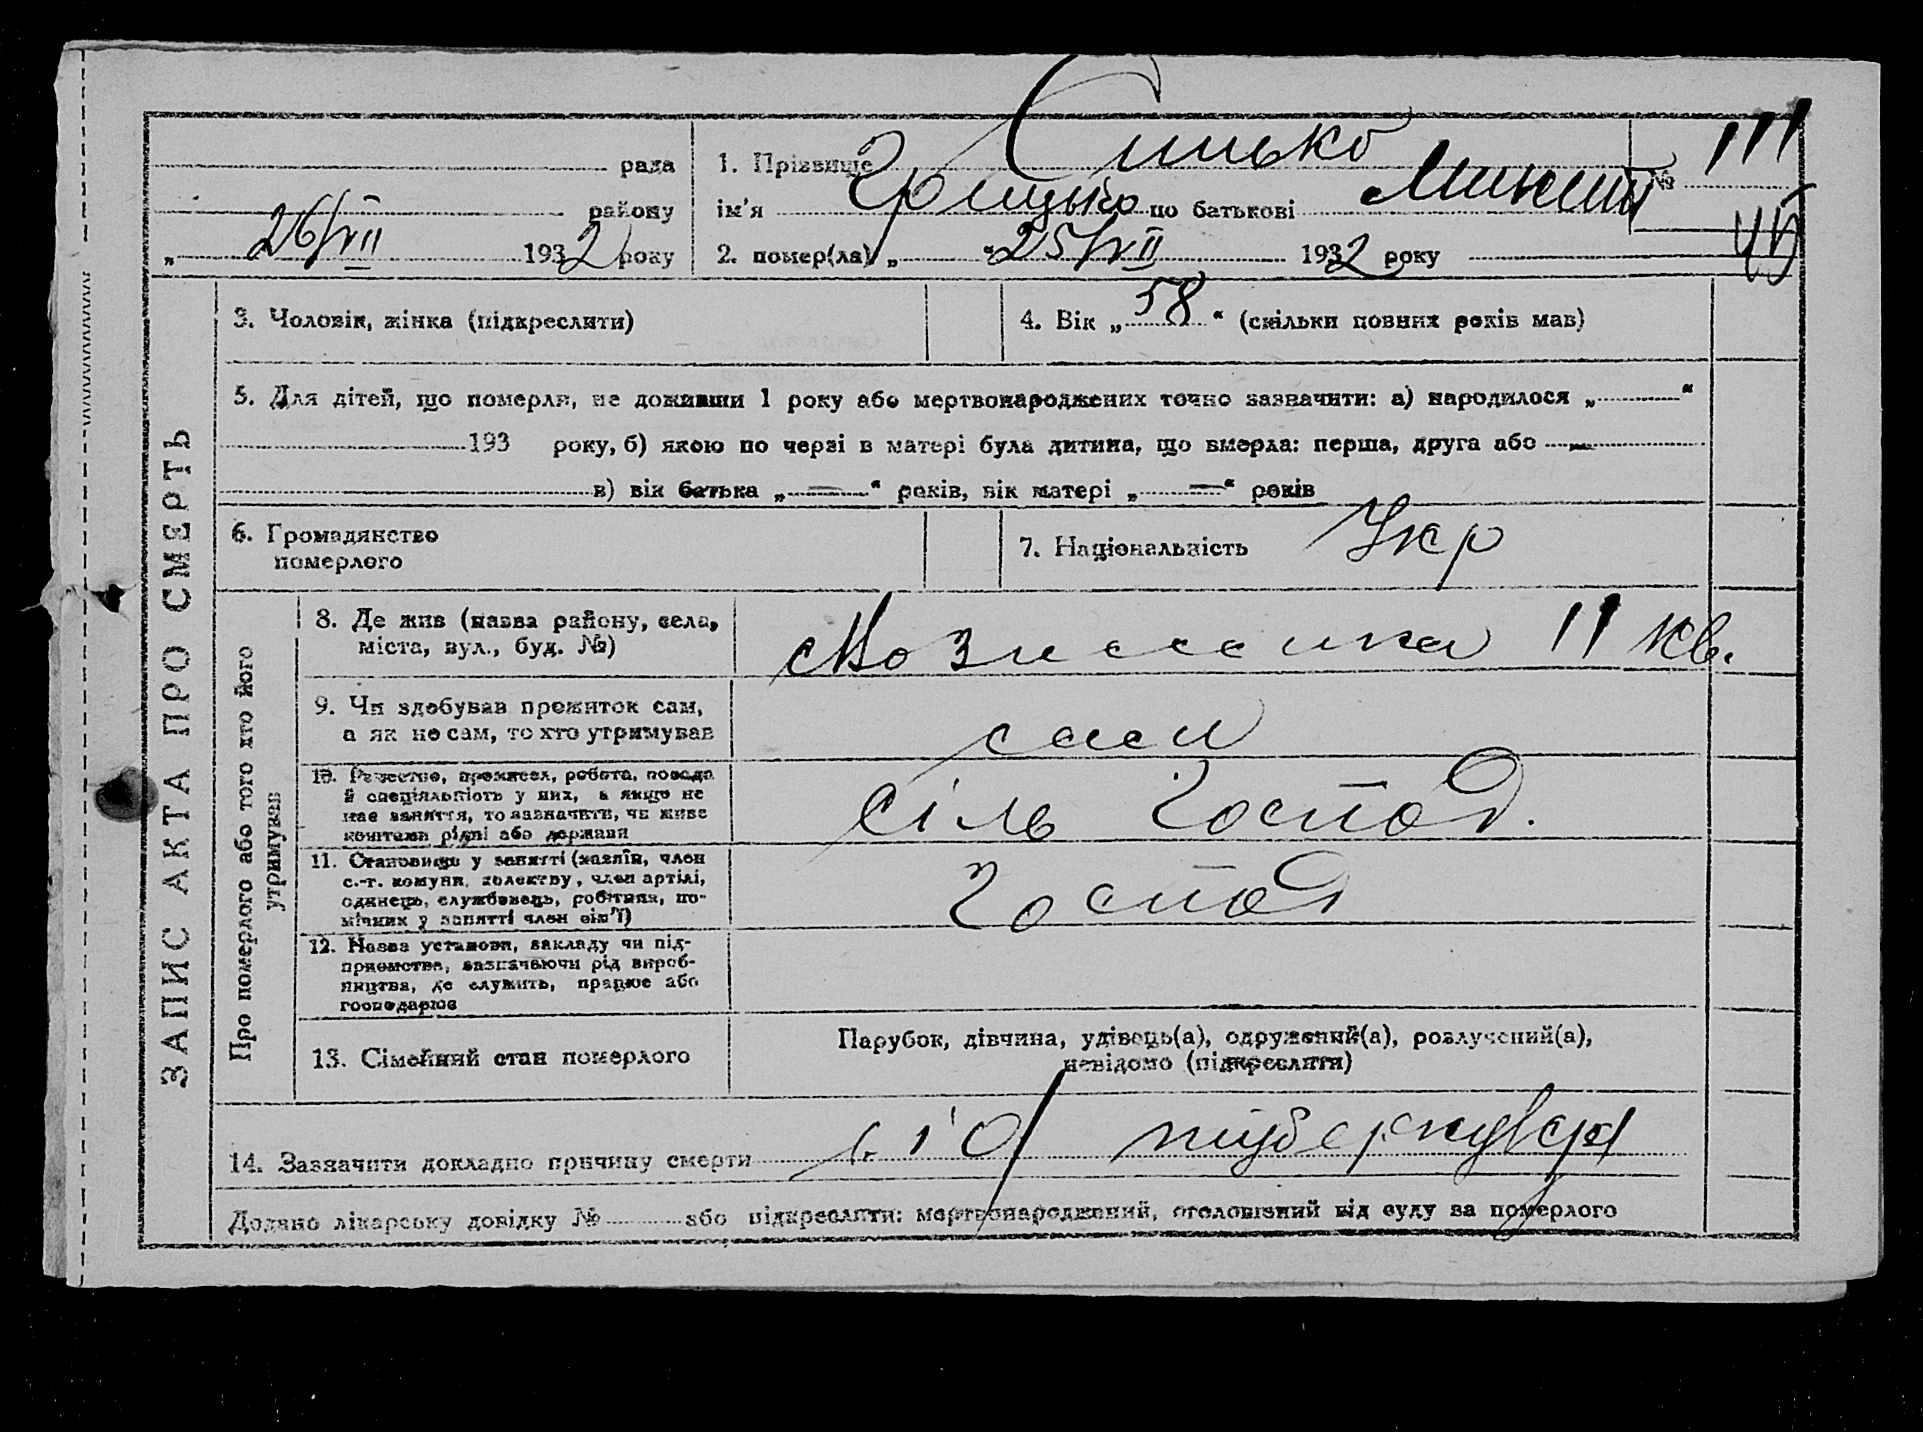 ЗАПИС АКТА ПРО СМЕРТЬ
рада
району
„ 26/VII 1932 року
1. Прізвище Синько
ім'я Грицько по батькові
2. помер(ла) „ 25/VII 1932 року
№ 111
45
3. Чоловік, жінка (підкреслити)
4. Вік „ 58 “ (скільки повних років мав)
5. Для дітей, що померли, не доживши 1 року або мертвонароджених точно зазначити: а) народилося „ “
193 року, б) якою по черзі в матері була дитина, що вмерла: перша, друга або —
в) вік батька „ — “ років, вік матері „ — “ років
6. Громадянство
померлого
7. Національність Укр
Про померлого або того хто його
утримував
8. Де жив (назва району, села,
міста, вул., буд. №)
Вознесенка 11 кв.
9. Чи здобував прожиток сам,
а як не сам, то хто утримував
сам
10. Ремество, промисел, робота, посада
й спеціяльність у них, а якщо не
має заняття, то зазначити, чи живе
коштами рідні або держави
сіль господ.
11. Становище у занятті (хазяїн, член
с.-г. комуни, колективу, член артілі,
одинець, службовець, робітник, по-
мічник у занятті член сім'ї)
господ
12. Назва установи, закладу чи під-
приємства, зазначаючи рід вироб-
ництва, де служить, працює або
господарює
13. Сімейний стан померлого
Парубок, дівчина, удівець(а), одружений(а), розлучений(а),
невідомо (підкреслити)
14. Зазначити докладно причину смерти туберкульоз
Додано лікарську довідку № або підкреслити: мертвонароджений, оголошений від суду за померлого